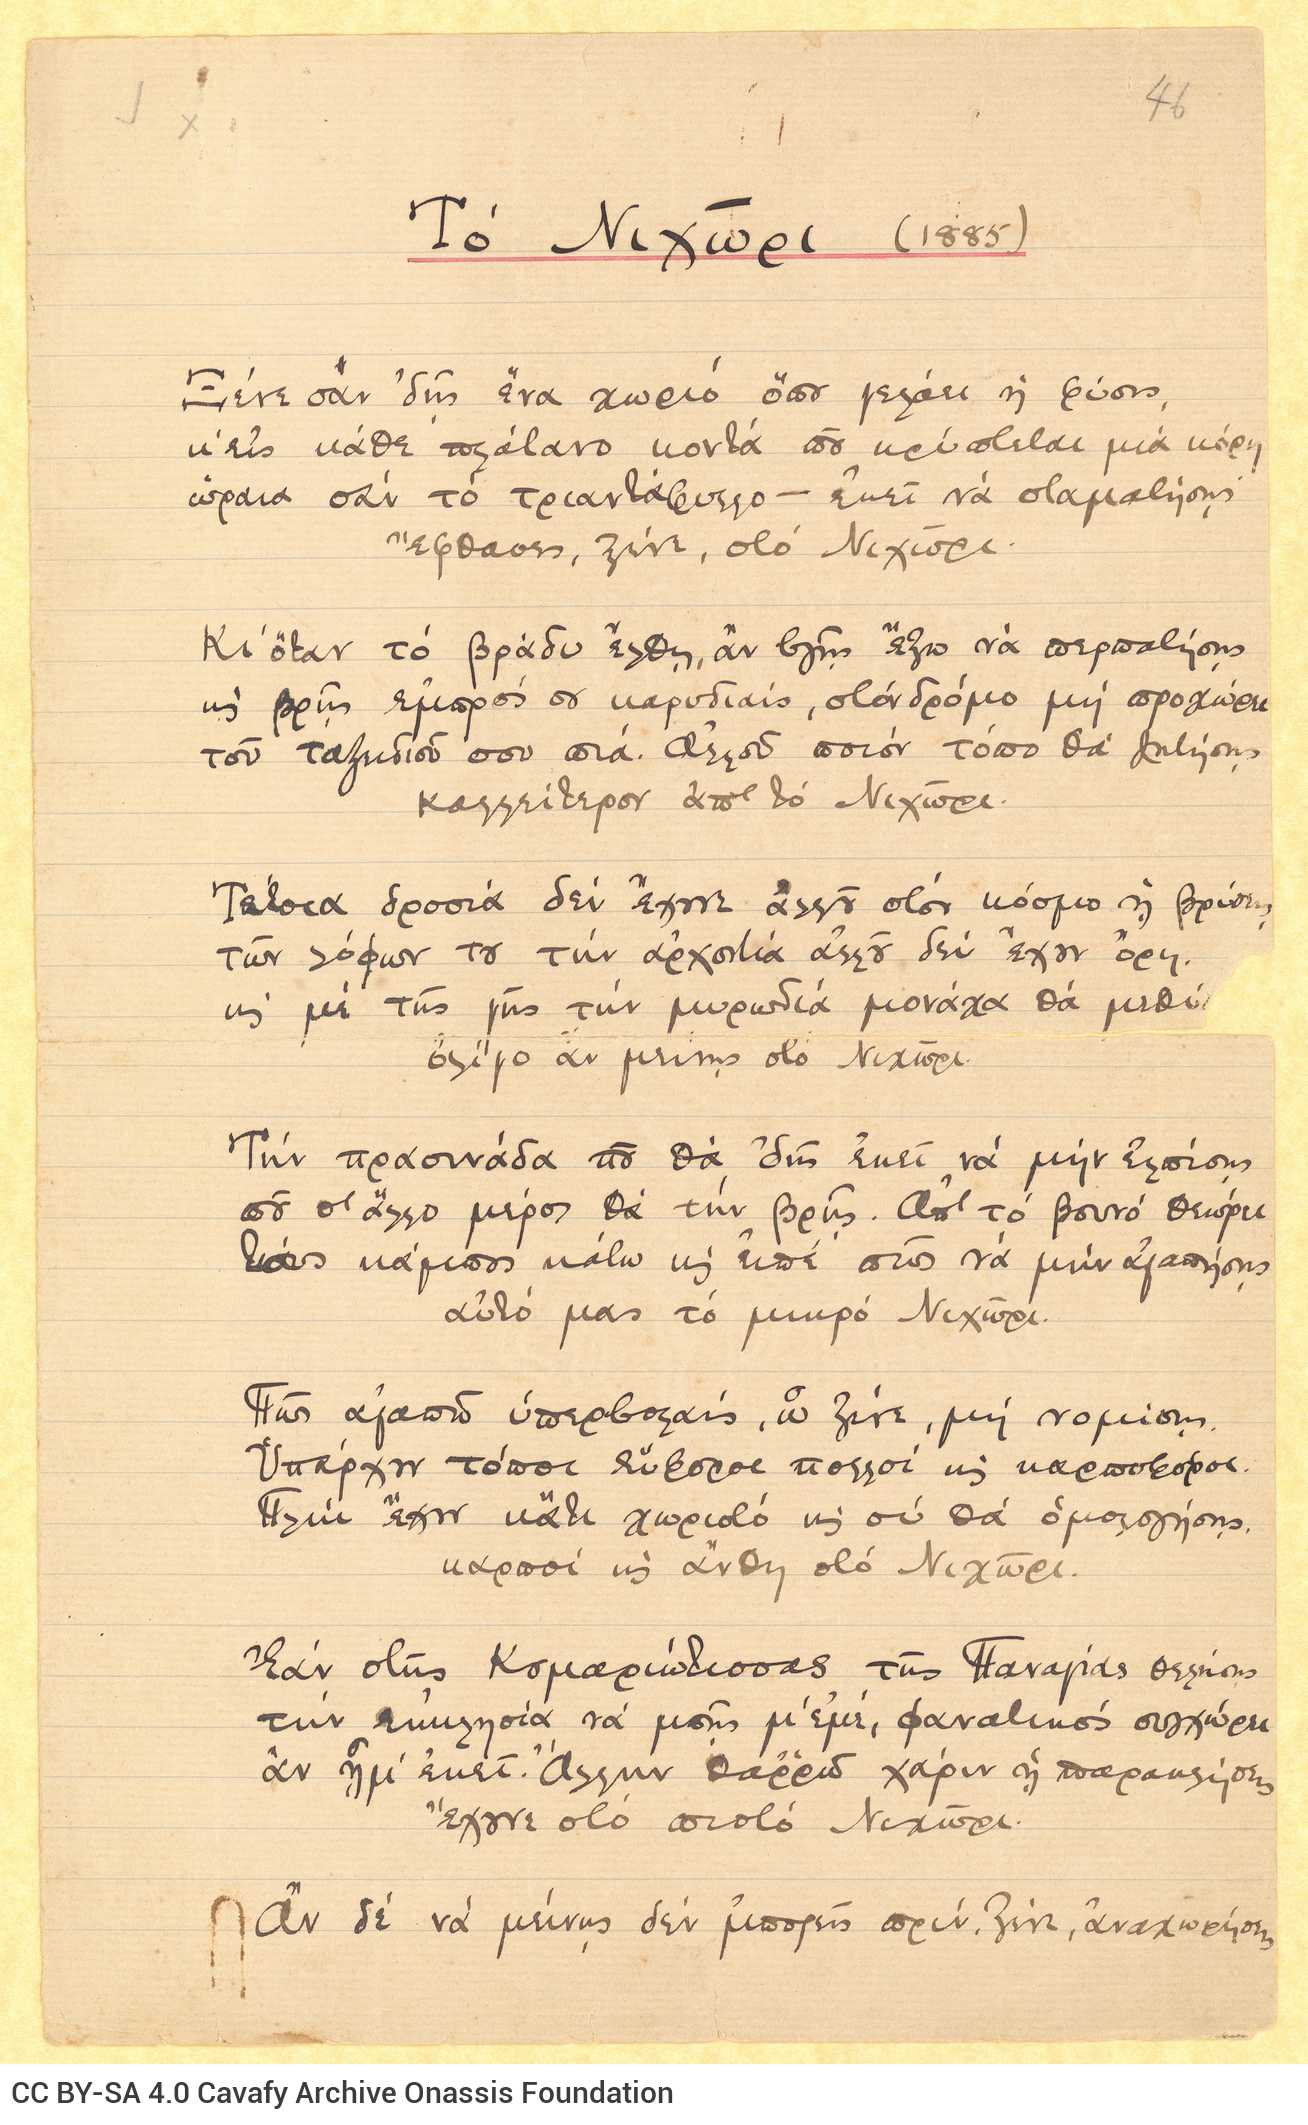 46
Τό Νιχῶρι (1885)
Ξένε σἄν ἰδῇς ἕνα χωριό ὅπου γελάει ἡ φύσις,
κ' εἰς κάθε πλάτανο κοντά ποῦ κρύπτεται μιά κόρη
ὡραία σάν τό τριαντάφυλλο — ἐκεῖ νά σταματήσῃς·
ἔφθασες, ξένε, στό Νιχῶρι.
Κι' ὅταν τό βράδυ ἔλθῃ, ἄν βγῇς ἔξω νά περπατήσῃς
κι βρῇς ἐμπρός σου καρυδιαίς, στόν δρόμο μή προχώρει
τοῦ ταξειδιοῦ σου πιά. Ἀλλοῦ ποιόν τόπο θά ζητήσῃς
καλλείτερον ἀπ' τό Νιχῶρι.
Τέτοια δροσιά δέν ἔχουνε ἀλλοῦ στόν κόσμο ἡ βρύσες,
τῶν λόφων του τήν ἀρχοντιά ἀλλοῦ δέν ἔχουν ὄρη.
κι μέ τῆς γῆς τήν μυρωδιά μονάχα θά μεθύ
ὀλίγο ἄν μείνῃς στό Νιχῶρι.
Τήν πρασινάδα ποῦ θά ἰδῇς ἐκεῖ νά μήν ἐλπίσῃς
ποῦ σ' ἄλλο μέρος θά τήν βρῇς. Ἀπ' τό βουνό θεώρει
τούς κάμπους κάτω κι εἰπέ πῶς νά μήν ἀγαπήσῃς
αὐτό μας τό μικρό Νιχῶρι.
Πῶς ἀγαπῶ ὑπερβολαίς, ὦ ξένε, μή νομίσῃς.
Ὑπάρχουν τόποι εὔφοροι πολλοί κι καρποφόροι.
Πλήν ἔχουν κἄτι χωριστό κι σύ θά ὁμολογήσῃς,
καρποί κι ἄνθη στό Νιχῶρι.
Ἐάν στῆς Κουμαριώτισσας τῆς Παναγίας θελήσῃς
τήν ἐκκλησία νά μπῇς μ' ἐμέ, φανατικός συγχώρει
ἄν ἦμ' ἐκεῖ. Ἄλλην θαῤῥῶ χάριν ἡ παρακλήσεις
ἔχουνε στό πιστό Νιχῶρι.
Ἄν δέ νά μείνῃς δέν 'μπορεῖς πρίν, ξένε, ἀναχωρήσῃς
CC BY-SA 4.0 Cavafy Archive Onassis Foundation